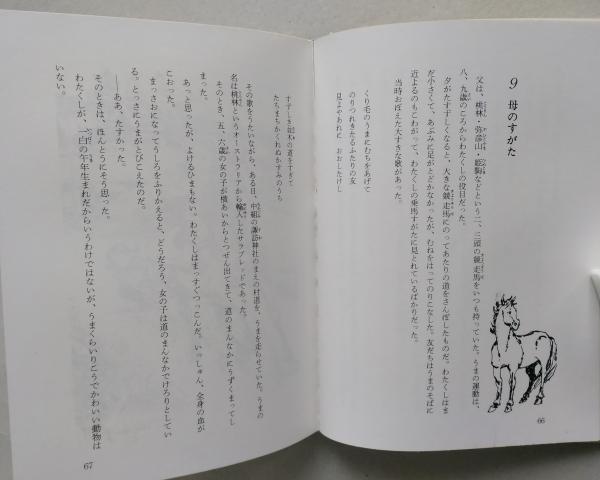 9 母のすがた
父は、桃林・弥彦山・姫駒などという二、三頭の競走馬をいつも持っていた。うまの運動は、
八、九歳のころからわたくしの役目だった。
夕がたすずしくなると、大きな競走馬にのってあたりの道をさんぽしたものだ。わたくしはま
だ小さくて、あぶみに足がとどかなかったが、むねをはってのりこなした。友だちはうまのそばに
近よるのもこわがって、わたくしの乗馬すがたに見とれているばかりだった。
当時おぼえた大すきな歌があった。
くり毛のうまにむちをあげて
のりつれきたるふたりの友
見よやあれに おおしたけし
66
すずしき並木の道をすぎて
たちまちかくれぬかすみのうち
その歌をうたいながら、ある日、中組の諏訪神社のまえの村道を、うまを走らせていた。うまの
名は桃林というオーストラリアから輸入したサラブレッドであった。
そのとき、五、六歳の女の子が横あいからとつぜん出てきて、道のまんなかにうずくまってし
まった。
あっと思ったが、よけるひまもない。わたくしはまっすぐつっこんだ。いっしゅん、全身の血が
こおった。
まっさおになってうしろをふりかえると、どうだろう、女の子は道のまんなかでけろりとしてい
る。とっさにうまがとびこえたのだ。
――ああ、たすかった。
そのときは、ほんとうにそう思った。
わたくしが、一白の午年生まれだからいうわけではないが、うまくらいりこうでかわいい動物は
いない。
67